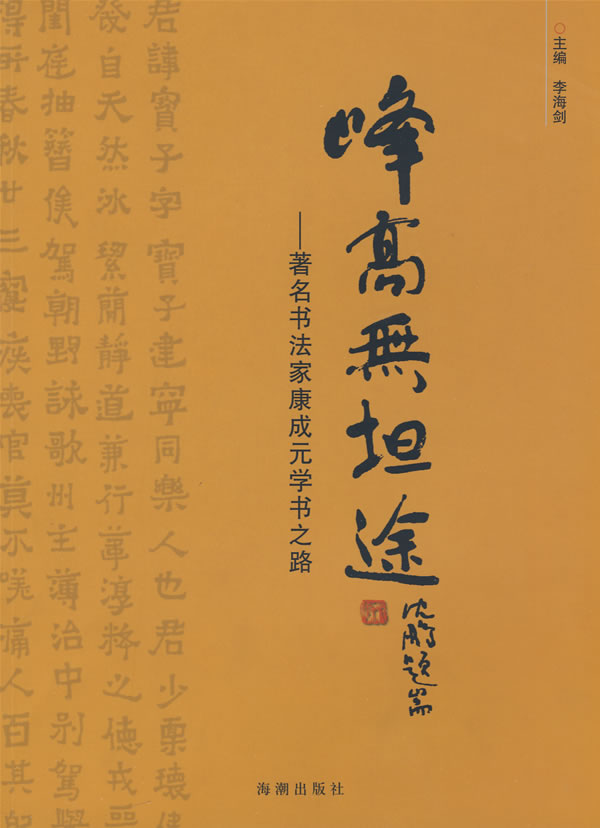 主编 李海剑
峰高無坦途
沈鹏题耑
——著名书法家康成元学书之路
君諱寶子字寶子建寧同樂人也君少稟瓌
發自天然冰絜簡靜道兼行葦淳粹之德戎
閨庭抽簪俟駕朝野詠歌州主簿治中别駕
得所春秋廿三寢疾喪官莫不嗟痛人百其
海潮出版社